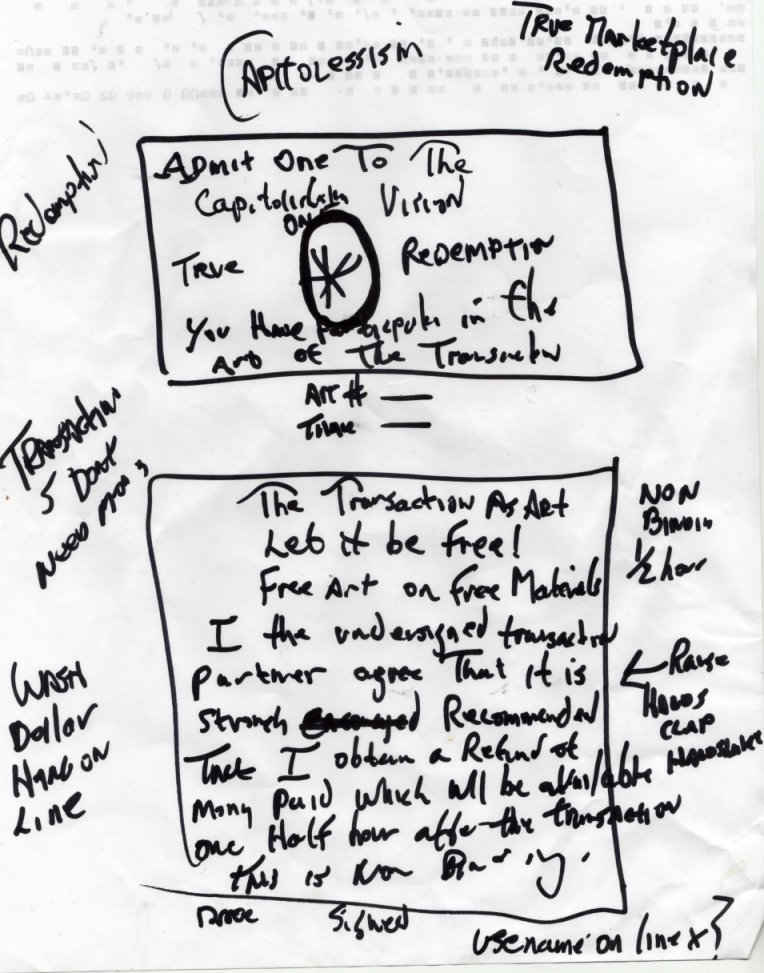 CAPITOLESSISM
TRUE MARKETPLACE
REDEMPTION
Redemption
ADMIT ONE TO THE
VISION
ON
TRUE
REDEMPTION
You Have in the
Art OF The
Art #
Time
TRANSACTION
S DONT
NEED
The Transaction As Art
Let it be free!
Free Art on free Materials
I the undersigned transaction
partner agree That it is
Recommended
That I obtain a Refund of
Mony paid which will be available
one Half hour after the transaction
this is Non
NON
1/2 hour
Raise
HANDS
CLAP
HANDSHAKE
WASH
Dollor
HANG ON
LINE
Signed
use name on line x